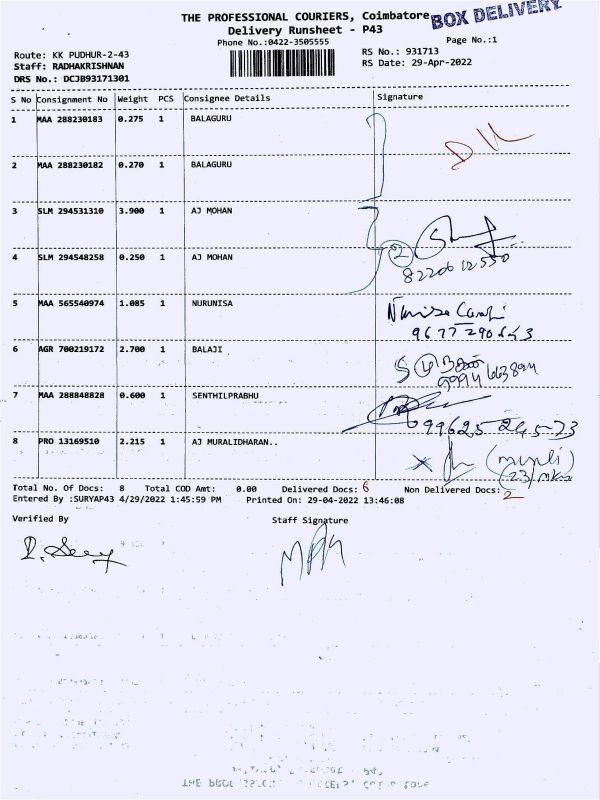 THE PROFESSIONAL COURIERS, Coimbatore
BOX DELIVERY
Delivery Runsheet - P43
Phone No.:0422-3505555
Page No.:1
Route: KK PUDHUR-2-43
RS No.: 931713
Staff: RADHAKRISHNAN
RS Date: 29-Apr-2022
DRS No.: DCJB93171301
S No Consignment No Weight PCS Consignee Details Signature
1 MAA 288230183 0.275 1 BALAGURU
2 MAA 288230182 0.270 1 BALAGURU
3 SLM 294531310 3.900 1 AJ MOHAN
4 SLM 294548258 0.250 1 AJ MOHAN
2
8220612550
5 MAA 565540974 1.085 1 NURUNISA
6 AGR 700219172 2.700 1 BALAJI
9994663894
7 MAA 288848828 0.600 1 SENTHILPRABHU
8 PRO 13169510 2.215 1 AJ MURALIDHARAN..
Total No. Of Docs: 8 Total COD Amt: 0.00 Delivered Docs: 6 Non Delivered Docs: 2
Entered By :SURYAP43 4/29/2022 1:45:59 PM Printed On: 29-04-2022 13:46:08
Verified By Staff Signature